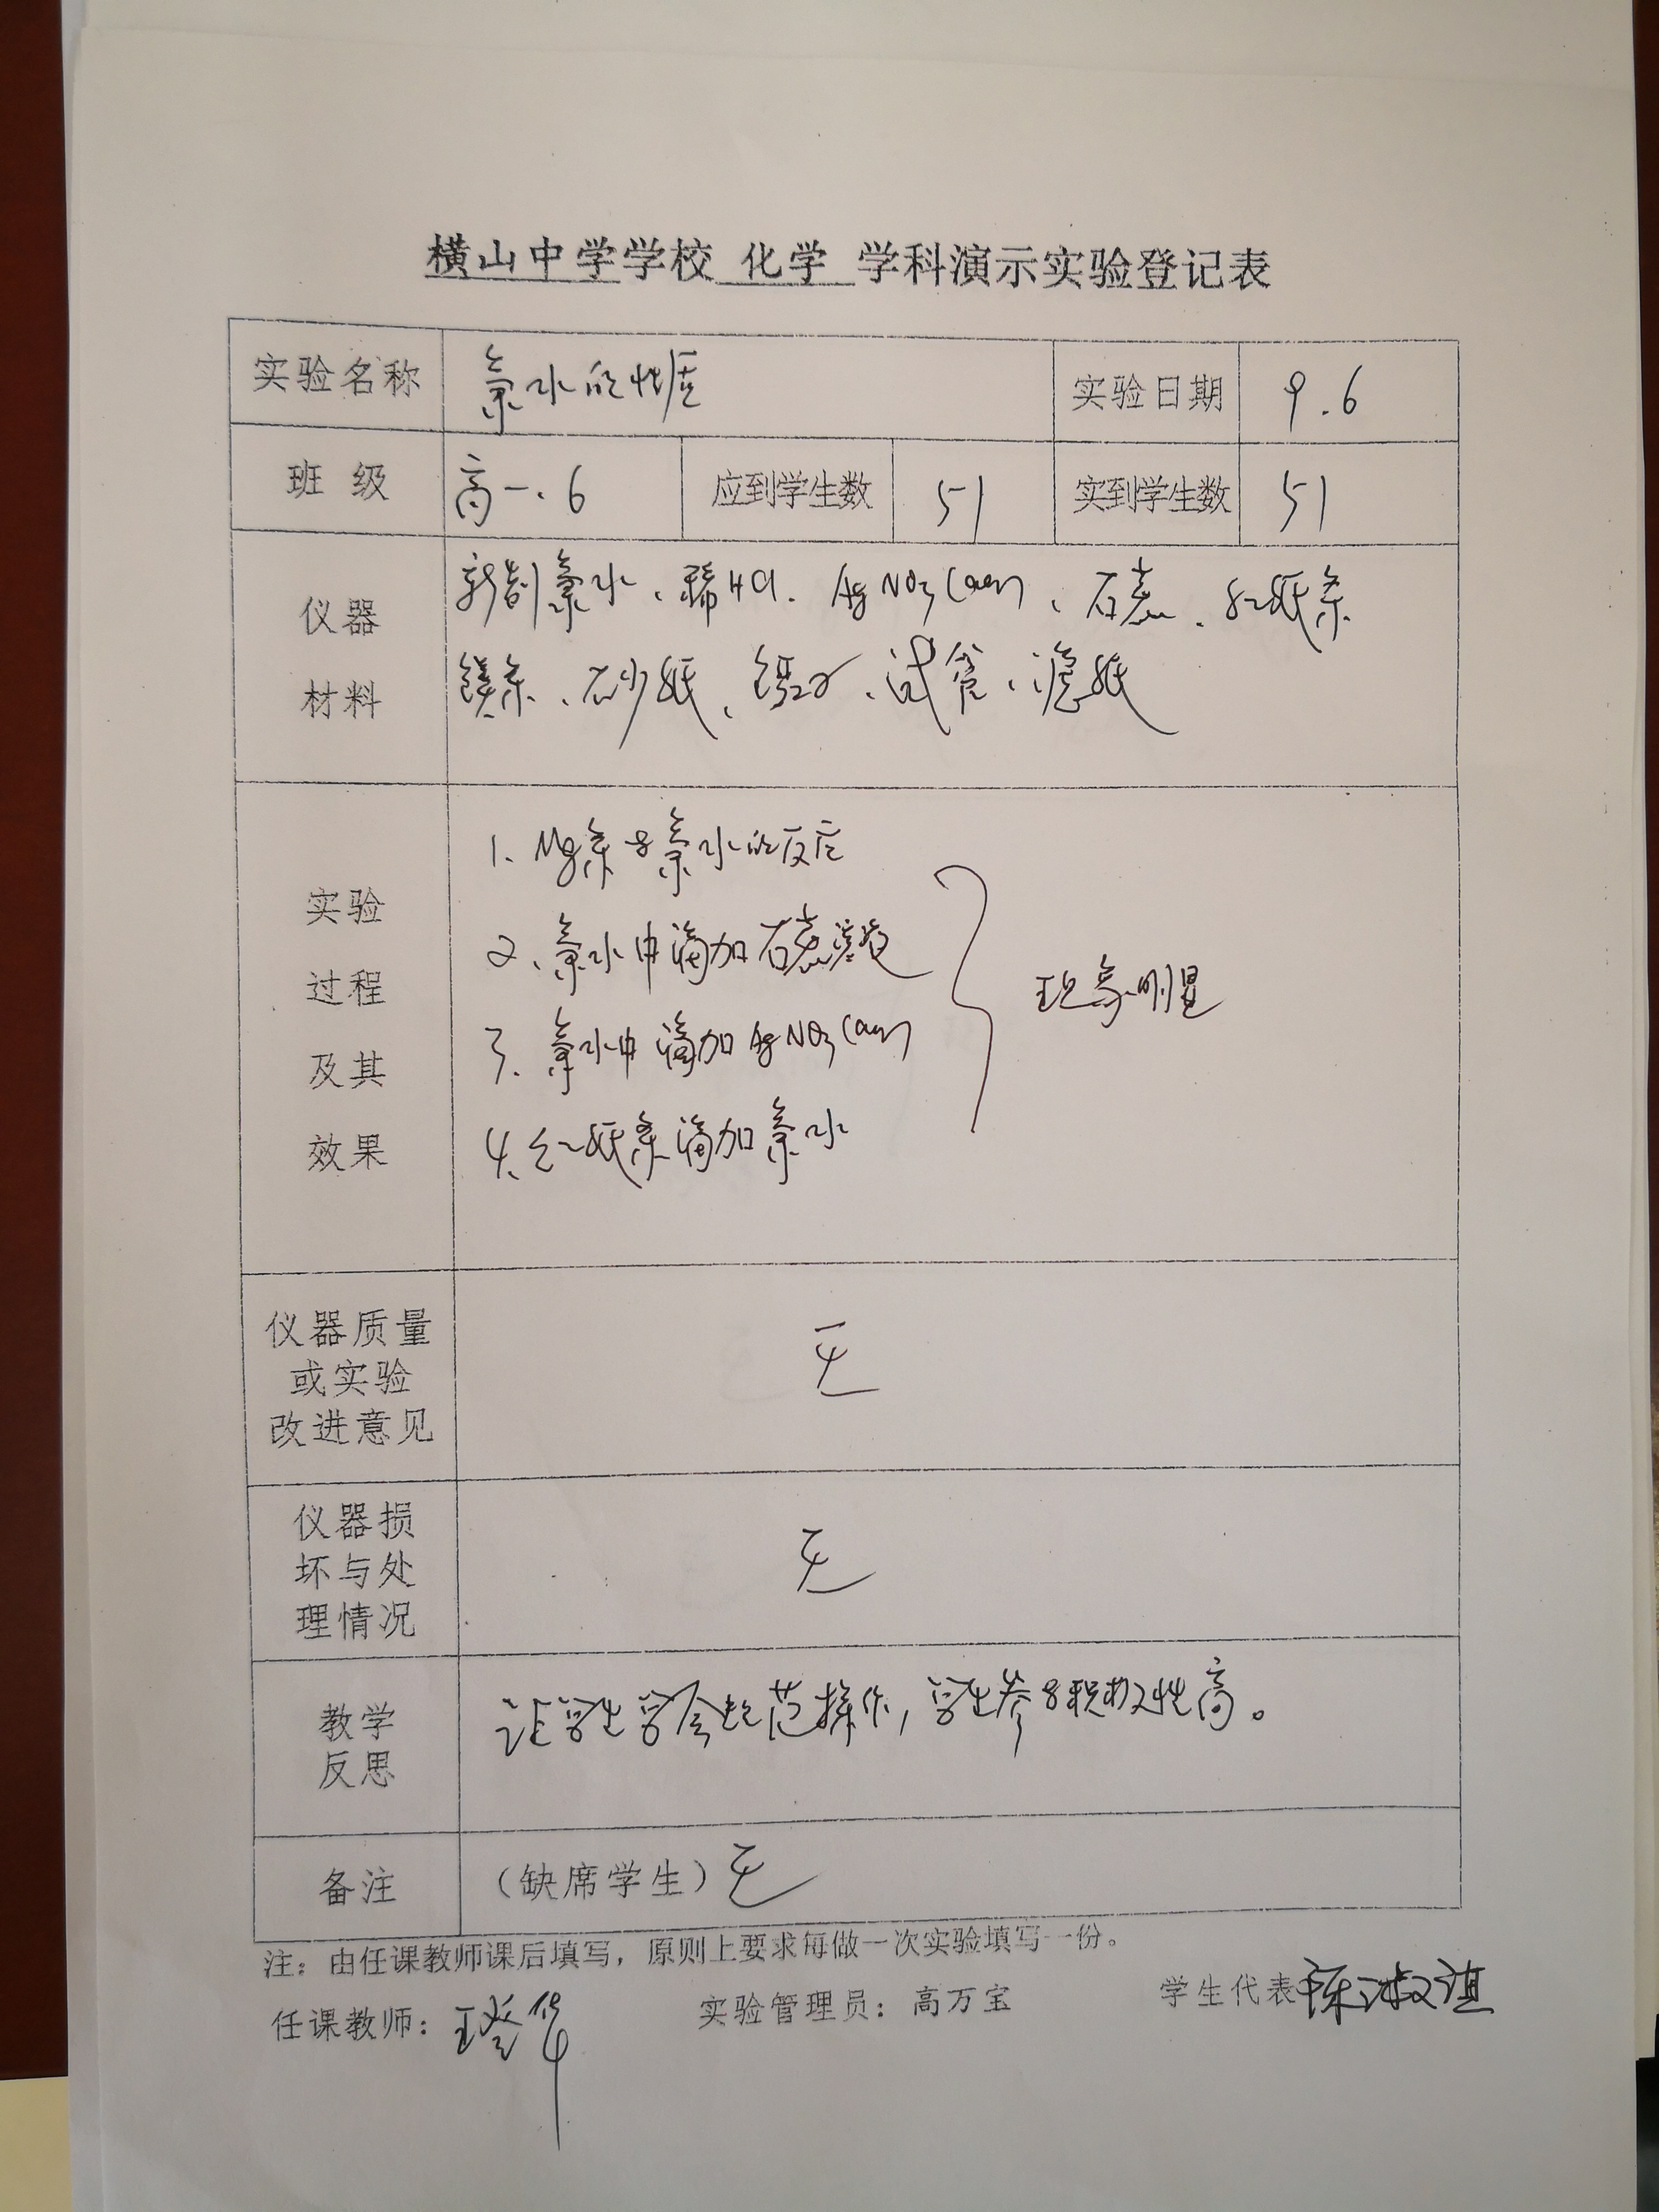 横山中学学校 化学 学科演示实验登记表
实验名称 氯水的性质 实验日期 9.6
班级 高一.6 应到学生数 51 实到学生数 51
仪器
材料
新制氯水、稀HCl、AgNO3(aq)、石蕊、红纸条
镁条、砂纸、镊子、试管、滤纸
实验
过程
及其
效果
1、Mg条与氯水的反应
2、氯水中滴加石蕊溶液
3、氯水中滴加AgNO3(aq)
4、红纸条滴加氯水
现象明显
仪器质量
或实验
改进意见
无
仪器损
坏与处
理情况
无
教学
反思
让学生学会规范操作,学生参与积极性高。
备注 (缺席学生)无
注:由任课教师课后填写,原则上要求每做一次实验填写一份。
任课教师: 实验管理员:高万宝 学生代表 陈淑淇